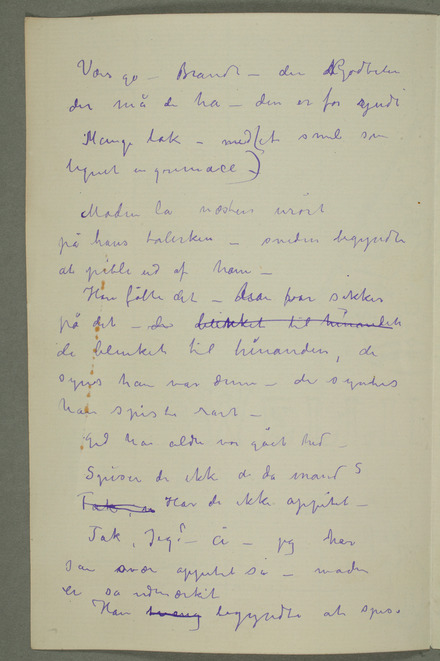 Vær go – Brandt – den Godbiten
den må de ha – den er for syndi
Mange tak – med (et smil som
lignet en grimace)
Maden la næsten urørt
på hans talerken – sveden begyndte
at pible ud af ham –
Han følte det – var sikker
på det – de blinket til hinanden
de blinket til hinanden, de
synes han var dum – de syntes
han spiste rart –
Gud han aldri var gåt hid –
Spiser de ikke da mand?
Tak, Har de ikke appetit –
Tak, Jeg? – å – jeg har
san svær appetit så – maden
er så udmærket
Han begyndte at spise